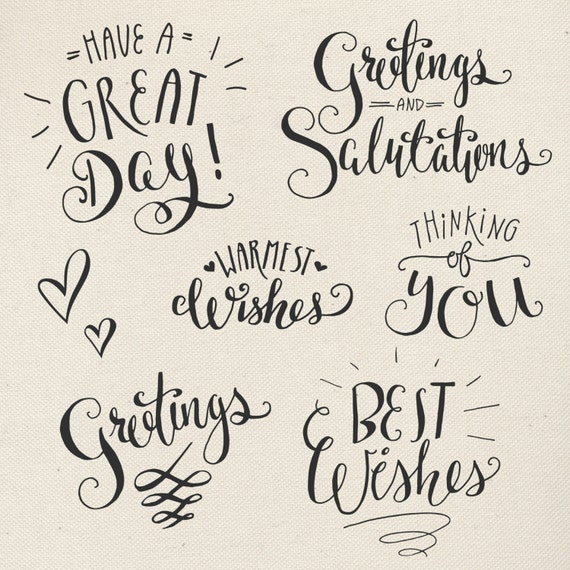 HAVE A
GREAT
DAY!
Greetings
AND
Salutations
WARMEST
Wishes
THiNKiNG
of
YOU
Greetings
BEST
Wishes